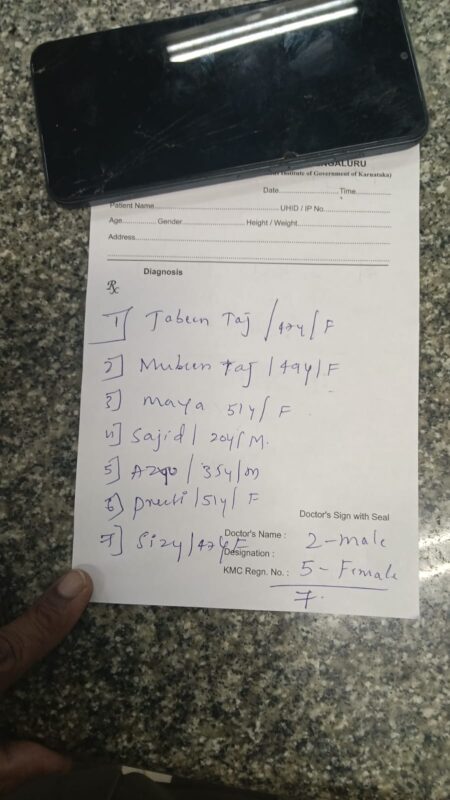 NGALURU
Institute of Government of Karnataka)
Date Time
Patient Name UHID / IP No
Age Gender Height / Weight
Address
Diagnosis
Rx
1] Tabeen Taj / 47y / F
2] Mubeen Taj / 49y / F
3] Maya 51y / F
4] Sajid / 20y / M.
5] / 35y / m
6] Preeti / 51y / F
7] Sizy / 47y F
Doctor's Sign with Seal
Doctor's Name : 2 - male
Designation :
KMC Regn. No. : 5 - Female
7.